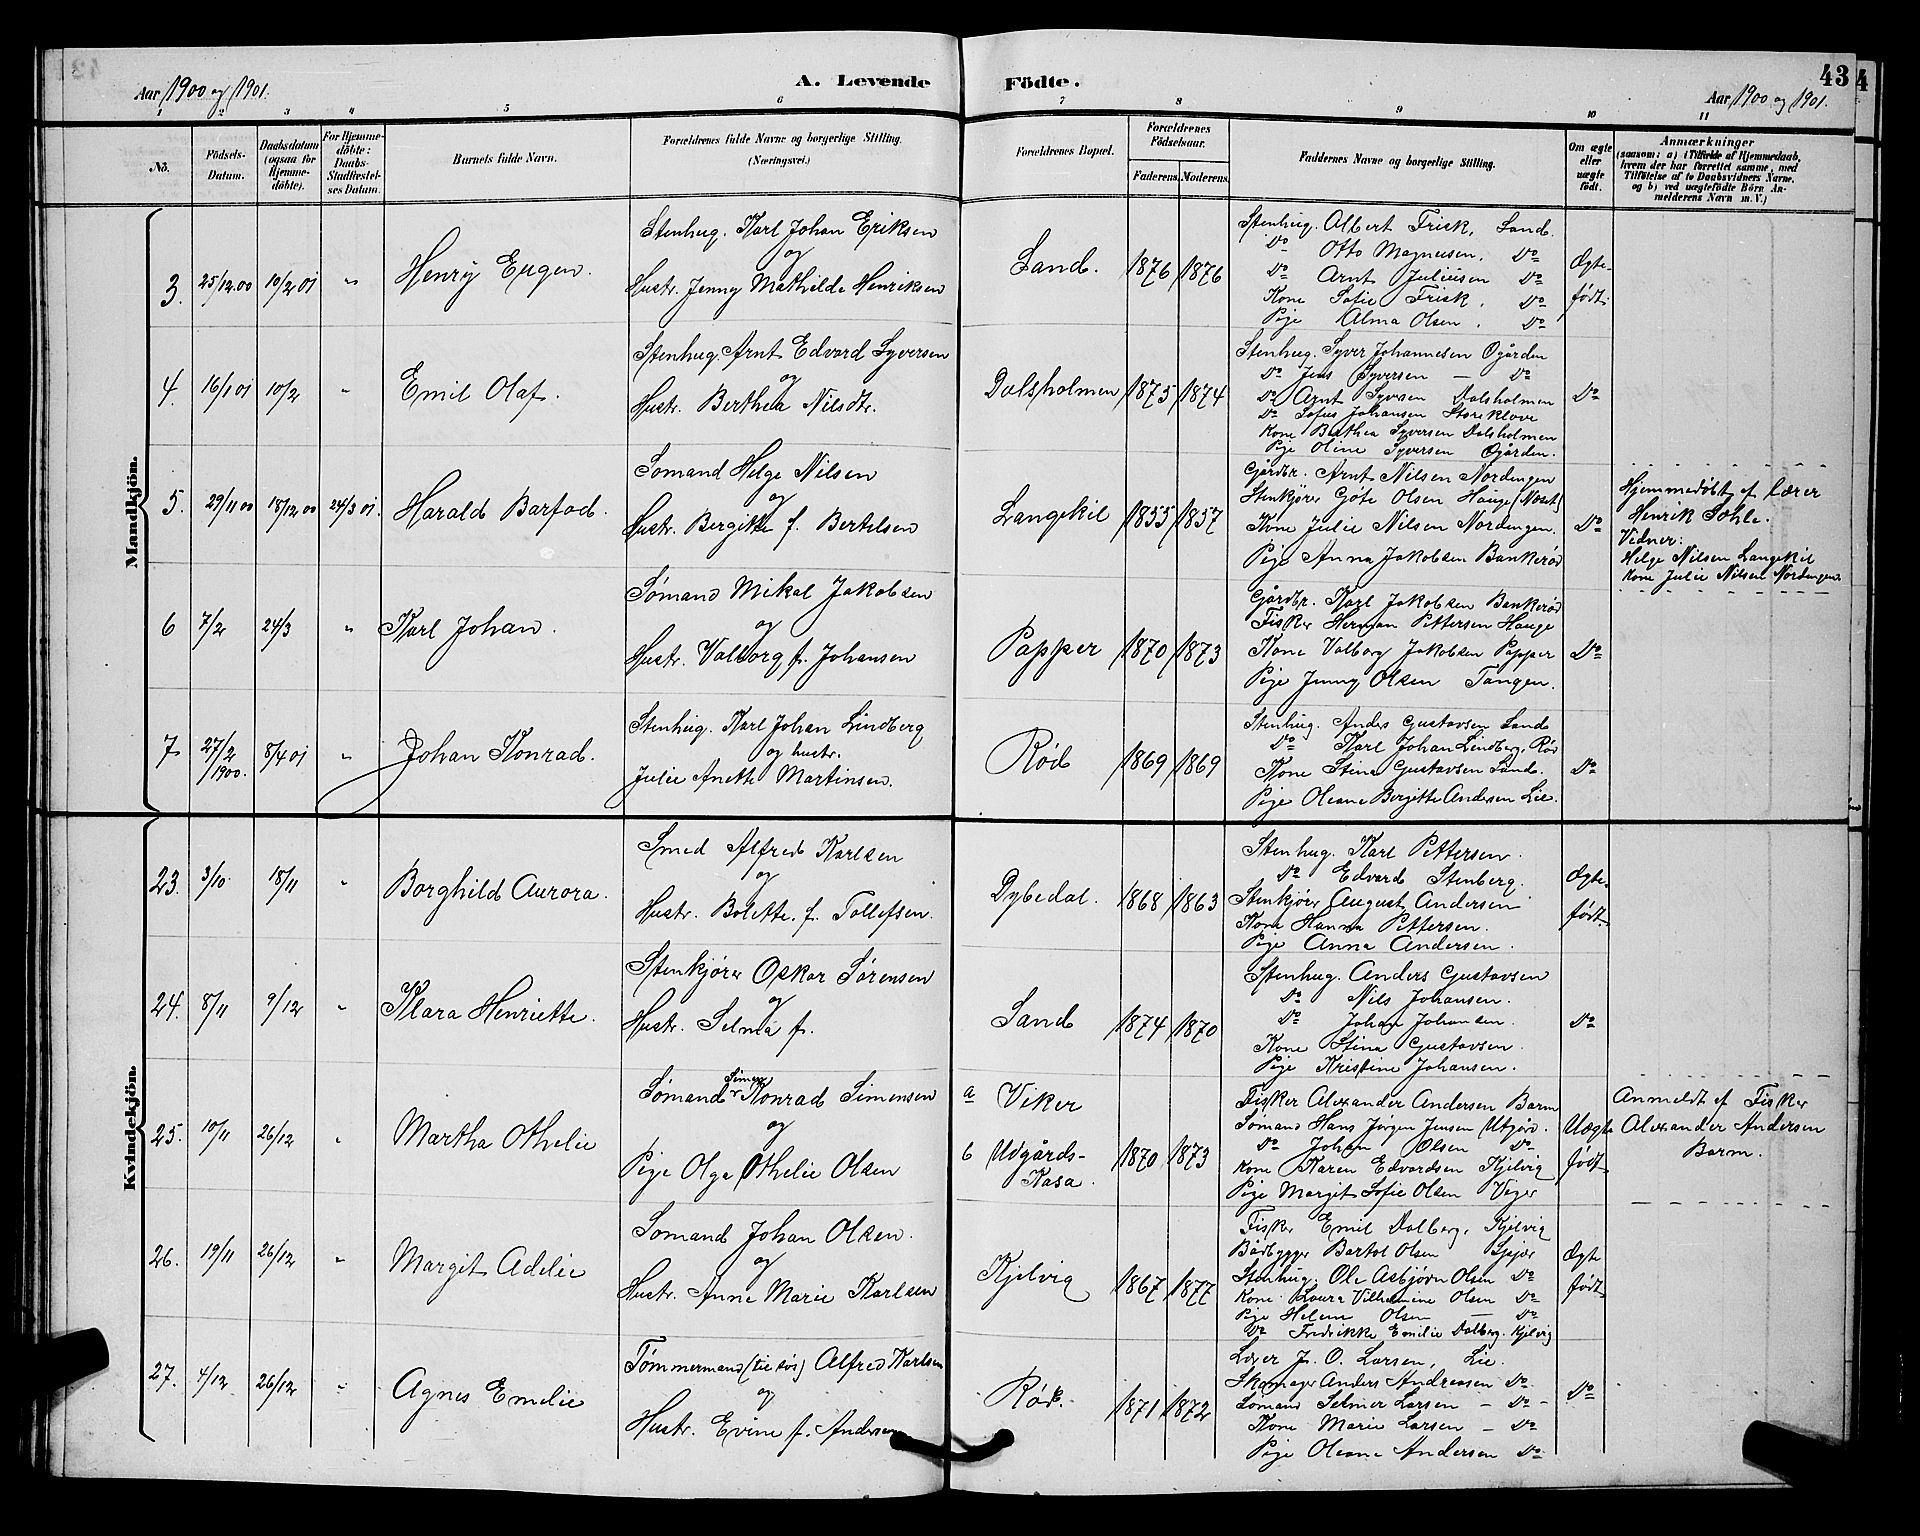 43
Aar 1900 og 1901.
A. Levende Födte.
Aar 1900 og 1901.
1 2 3 4 5 6 7 8 9 10 11
No.
Födsels-Datum.
Daabsdatum (ogsaa for Hjemmedöbte).
For Hjemmedöbte: Daabs-Stadfæstelses Datum.
Barnets fulde Navn.
Forældrenes fulde Navne og borgerlige Stilling.
(Næringsvei.)
Forældrenes Bopæl.
Forældrenes Födselsaar.
Faderens. Moderens.
Faddernes Navne og borgerlige Stilling.
Om ægte eller uægte födt.
Anmærkninger
(saasom: a) i Tilfælde af Hjemmedaab, hvem der har forrettet samme, med Tilföielse af to Daabsvidners Navne, og b) ved uægtefödte Börn Anmelderens Navn m. V.)
Mandkjön.
3. 25/12.00 10/2 01 " Henry Eugen.
Stenhug. Karl Johan Eriksen
og
Hustr. Jenny Mathilde Henriksen
Sand. 1876 1876
Stenhug. Albert Frisk, Sand.
Do Otto Magnusen, Do
Do Arnt Juliusen Do
Kone Sofie Frisk, Do
Pige Alma Olsen. Do
Ægte-
født.
4. 16/1 01 10/2 " Emil Olaf.
Stenhug. Arnt Edvard Syversen
og
Hustr. Berthea Nilsdtr.
Dalsholmen 1875 1874
Stenhug. Syver Johannesen Øgården
Do Jens Syversen — Do
Do Arnt Syversen Dalsholmen
Do Sofus Johansen Storeklove
Kone Berthea Syversen Dalsholmen
Pige Oline Syversen Øgården.
Do
5. 29/11 00 18/12 00 24/3 01. Harald Barfod.
Sømand Helge Nilsen
og
Hustr. Bergitte f. Bertelsen
Langekil 1855 1857
Gårdbr. Arnt Nilsen Nordengen
Stenkjører Göte Olsen Hauge
Kone Julie Nilsen Nordengen.
Pige Anna Jakobsen Bankerød
Do
Hjemmedøbt af Lærer
Henrik Sohle.
Vidner:
Helge Nilsen Langekil
Kone Julie Nilsen Nordengen.
6 7/2 24/3 " Karl Johan.
Sømand Mikal Jakobsen
og
Hustr. Valborg f. Johansen
Papper 1870 1873
Gårdbr. Karl Jakobsen Bankerød
Fisker Herman Pettersen Hauge
Kone Valborg Jakobsen Papper
Pige Jenny Olsen Tangen.
Do
7 27/2 1900. 8/4 01 " Johan Konrad.
Stenhug. Karl Johan Lindberg
og hustr.
Julie Anette Martinsen.
Rød 1869 1869
Stenhug. Andes Gustavsen Sand
Do Karl Johan Lindberg, Rød
Kone Stina Gustavsen Sand.
Pige Oleane Bergitte Andersen Lie.
Do
Kvindekjön.
23. 3/10 18/11 " Borghild Aurora.
Smed Alfred Karlsen
og
Hustr. Bolette. f. Tollefsen.
Dybedal. 1868 1863
Stenhug. Karl Pettersen.
Do Edvard Stenberg.
Stenkjører August Andersen
Kone Hanna Pettersen.
Pige Anna Andersen.
Ægte-
født.
24. 8/11 9/12 " Klara Henriette.
Stenkjører Oskar Sørensen
og
Hustr. Selma f.
Sand 1874 1870
Stenhug. Anders Gustavsen
Do Nils Johansen.
Do Johan Johansen.
Kone Stina Gustavsen.
Pige Kristine Johansen.
Do
25. 10/11 26/12 " Martha Othelie
Simen
Sømand Konrad Simensen
og
Pige Olga Othelie Olsen
a Viker
b Udgårds-
Kasa. 1870 1873
Fisker Alexander Andersen Barm
Sømand Hans Jørgen Jensen Utgård.
Do Johan Olsen Do
Kone Karen Edvardsen Kjelvig
Pige Margit Sofie Olsen Viger
Uægte
født
Anmeldt af Fisker
Alexander Andersen
Barm.
26. 19/11 26/12 " Margit Adelie
Sømand Johan Olsen.
og
Hustr. Anne Marie Karlsen
Kjelvig 1867 1877
Fisker Emil Dalberg, Kjelvig
Bådbygger Bartol Olsen Spjær
Stenhug. Ole Asbjørn Olsen Do
Kone Laura Vilhelmine Olsen Do
Pige Helene Olsen — Do
Do Fredrikke Emilie Dalberg. Kjelvig
Ægte
født
27. 4/12 26/12 " Agnes Emelie
Tømmermand (til søs) Alfred Karlsen
og
Hustr. Evine f. Andersen
Rød. 1871 1872
Lærer J. O. Larsen, Lie.
Skomager Anders Andreasen Do
Sømand Selmer Larsen — Do —
Kone Marie Larsen — Do
Pige Oleane Andersen Do
Do